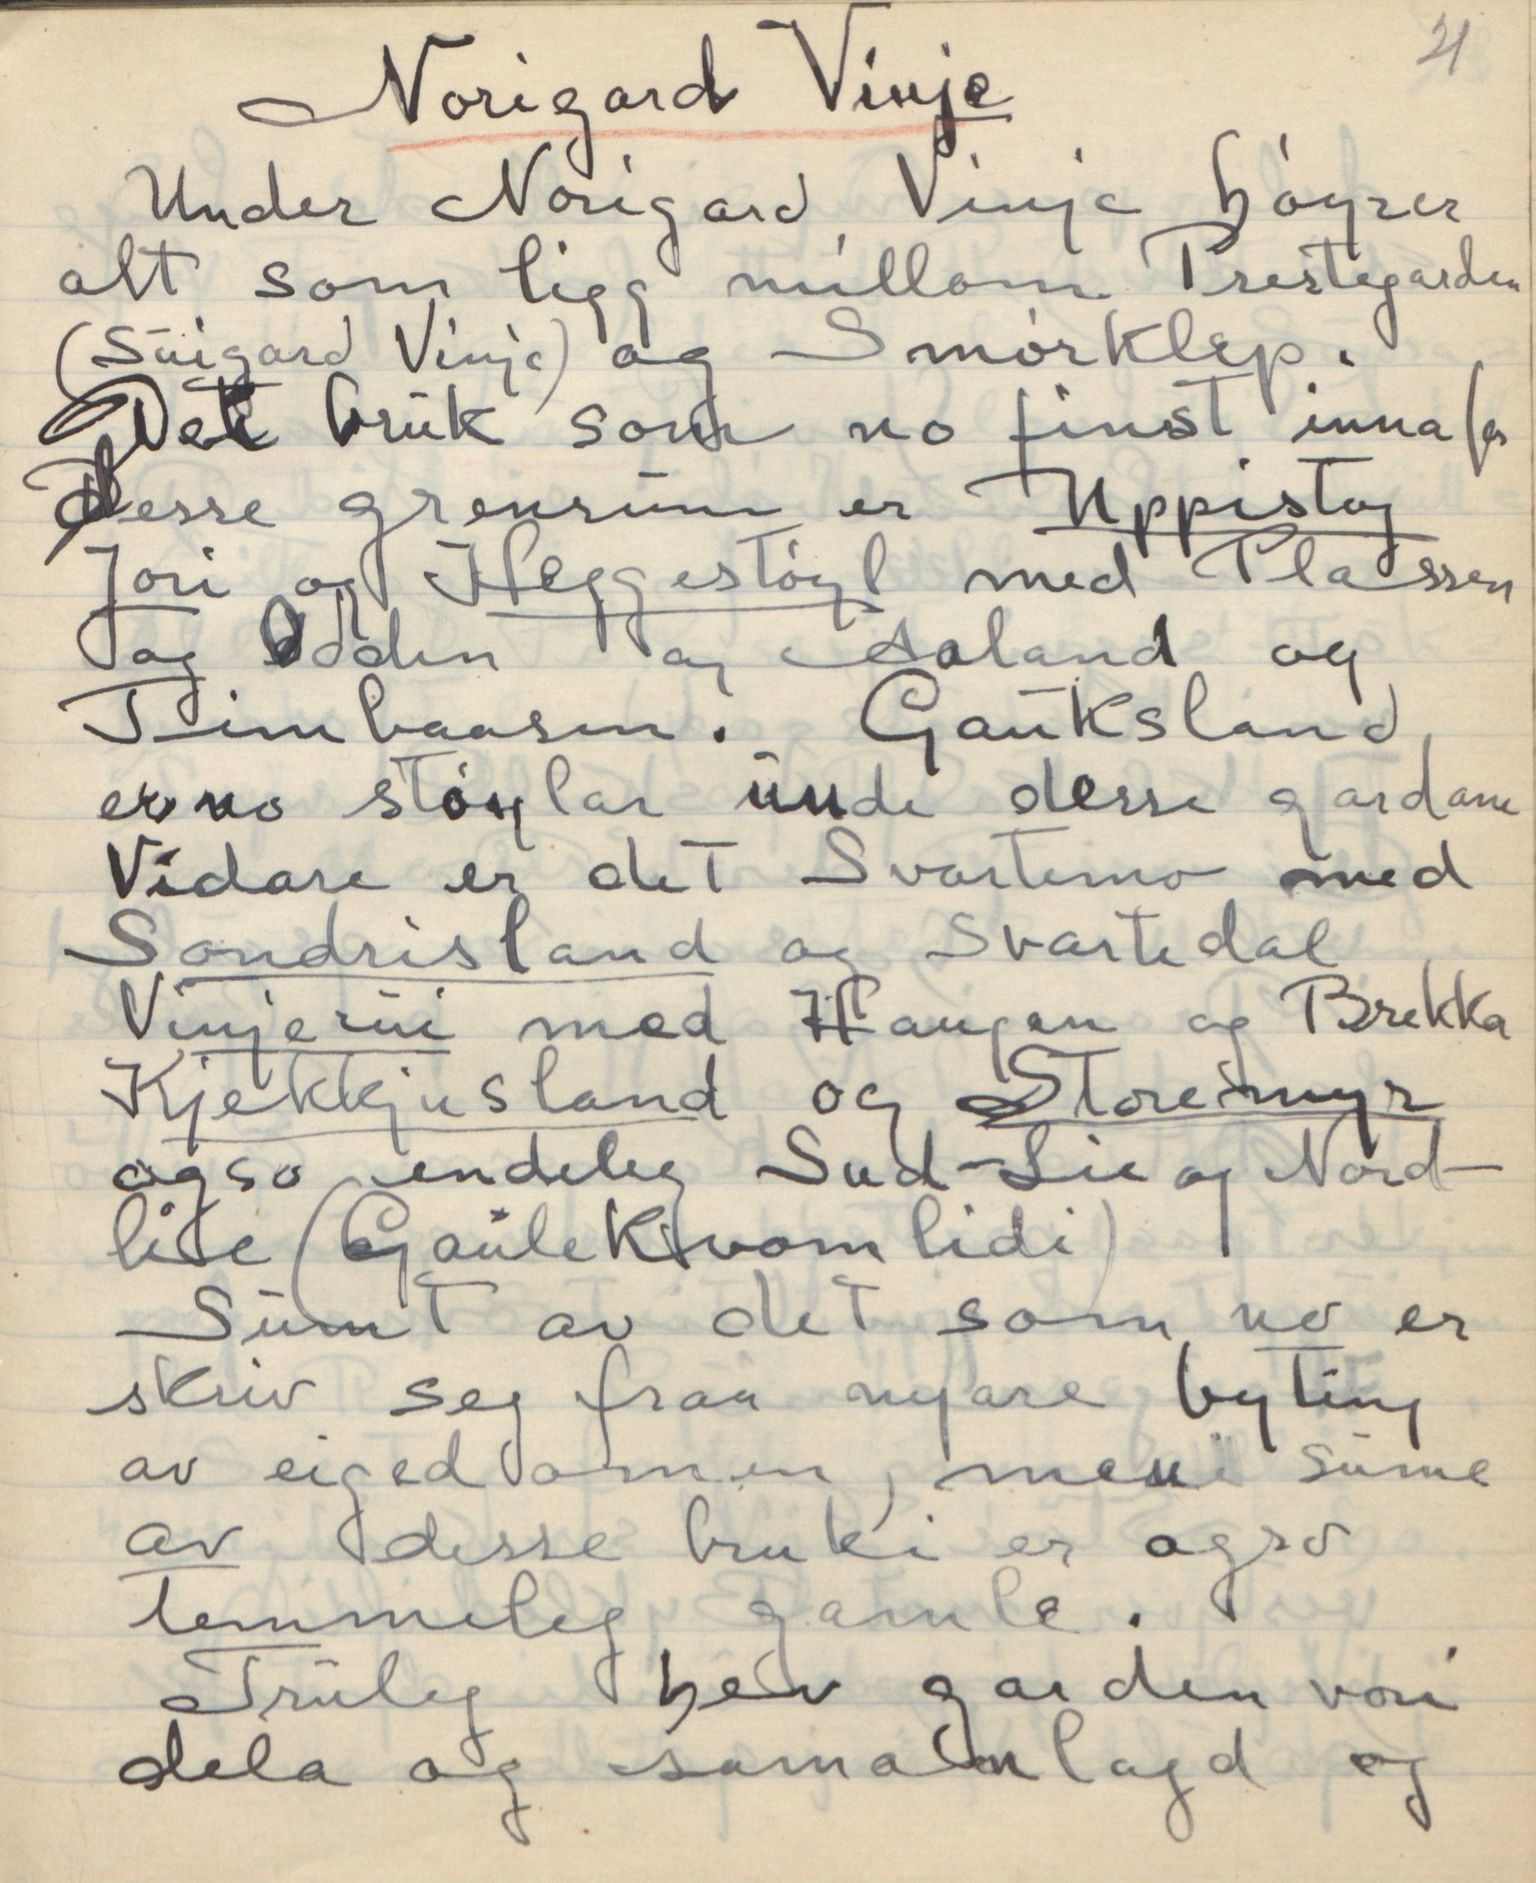 21
Norigard Vinje
Under Norigard Vinje höyrer
alt som ligg millom Prestegarden
(Suigard Vinje) og Smörklep.
Det bruk som no finst innafor
desse grensum er Uppistog
Jori og Heggestöyl med Plassen
og Odden og Aaland og
Timbaasen. Gauksland
er no stöylar unde desse gardane
Vidare er det Svartemo med
Sondrisland og Svartedal
Vinjerui med Haugen og Brekka
Kjekkjusland og Storemyr
ogso endeleg Sud-Lie og Nord-
lie (Gaulekvomlidi)
Sumt av det som no er
skriv seg fraa nyare byting
av eigedomen, men sume
av desse bruki er ogso
temmeleg gamle.
Truleg hev garden vori
dela og samanlagd og